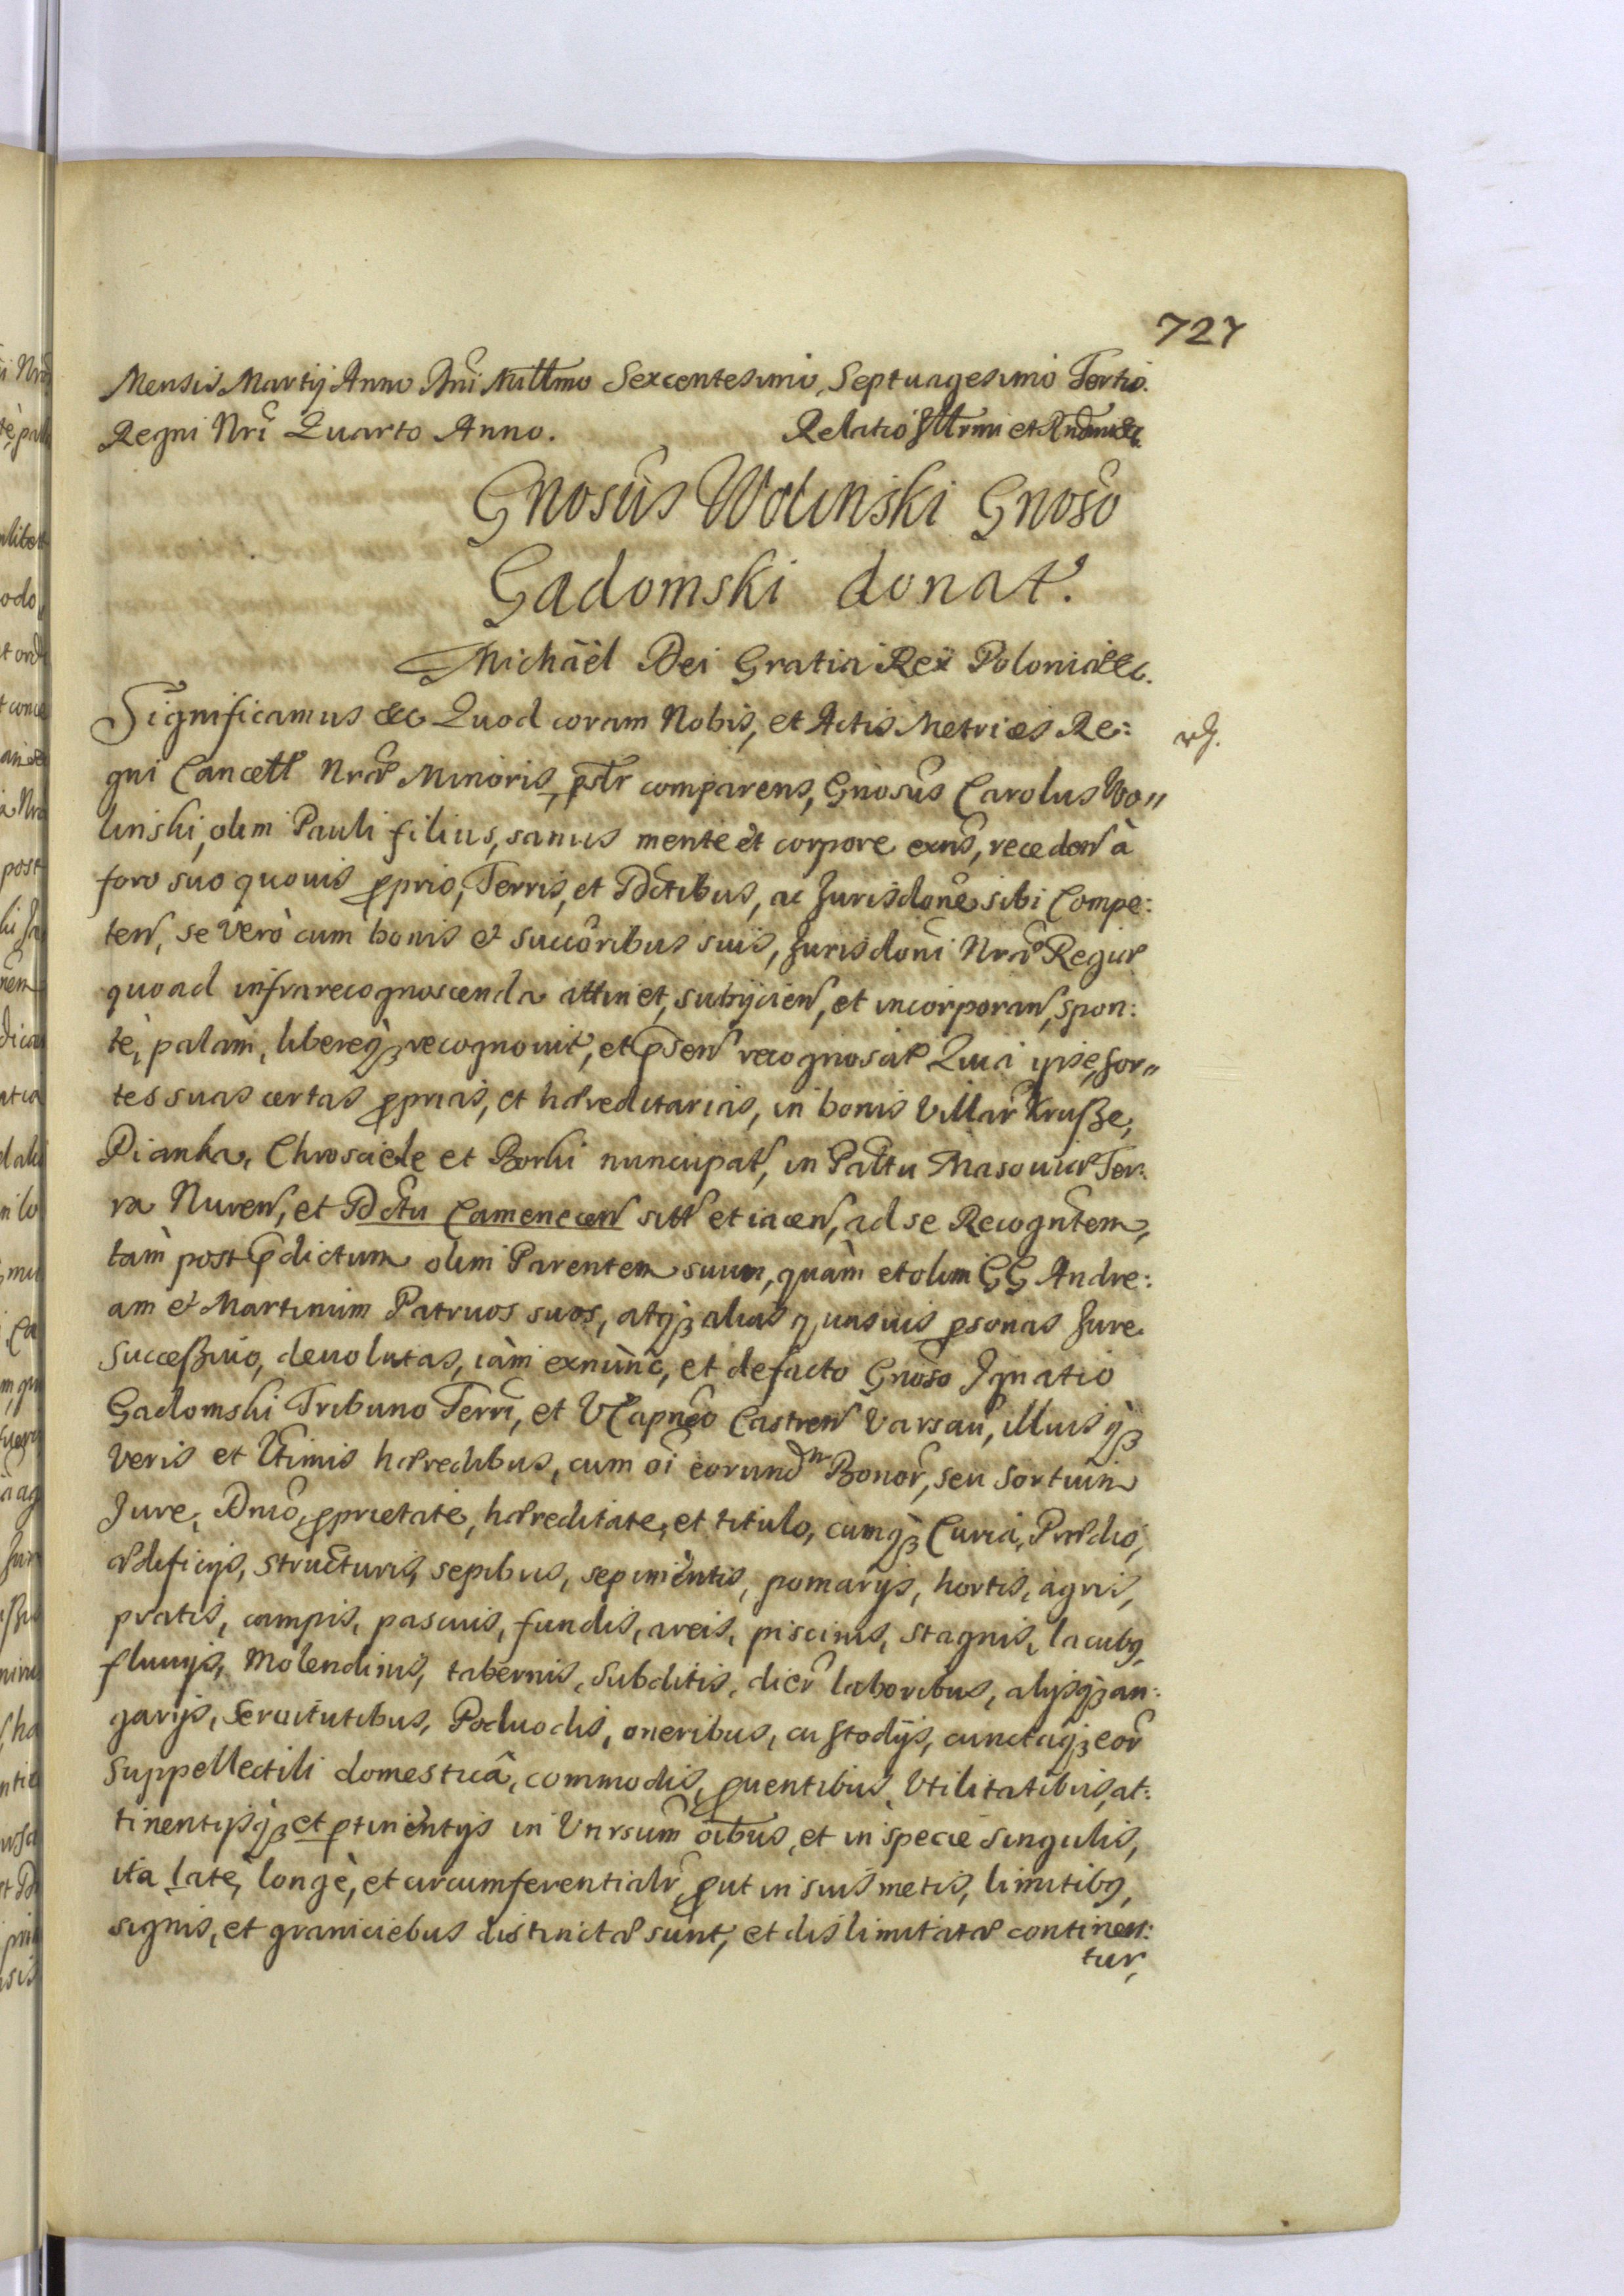 727
Mensis Martij Anno Dni Millmo Sexcentesimo Septuagesimo Tertio.
Regni Nri Quarto Anno. Relatio Illrmi et Rndmi &c
Gnosus Wolinski Gnoso
Gadomski donat.
Michaël Dei Gratia Rex Poloniæ &c.
Significamus &c Quod coram Nobis, et Actis Metrices Re:
gni Cancell Nræ Minoris, pstr comparens, Gnosus Carolus Wo"
linski, olim Pauli filius, sanus mente et corpore exns, receden à
foro suo quovis pprio, Terris, et Dctibus, ac Jurisdone sibi Compe:
ten, se verò cum bonis et succoribus suis, Jurisdoni Nræ Regiæ
quoad infrarecognoscenda attinet, subijcien, et incorporan, spon:
tè, palàm, libereq3 recognovit, et psen recognoscit Quia ipse, sor"
tes suas certas pprias, et hæreditarias, in bonis Villar Krusze,
Pianka, Chrosciele et Borki nuncupat, in Pattu Masouiæ Ter:
ra Nuren, et Dctu Camenecen sitt et iacen, ad se Recogntem,
tàm post pdictum olim Parentem suum, quàm et olim GG Andre:
am et Martinum Patruos suos, atq3 alias quasuis psonas Jure
Successiuo, deuolutas, iàm exnunc, et defacto Gnoso Ignatio
Gadomski Tribuno Terri, et VCapneo Castren Varsau, illiusq3
veris et Ltimis hæredibus, cum oi eorund Bonor, seu Sortium
Jure, Dnio, pprietate, hæreditate, et titulo, cumq3 Curia, Prædio,
ædificijs, structuris, sepibus, sepimentis, pomarijs, hortis, agris,
pratis, campis, pascuis, fundis, areis, piscinis, stagnis, lacubg,
fluuijs, Molendinis, tabernis, subditis, dicr laboribus, alijsq3 an:
garijs, Seruitutibus, Poduodis, oneribus, custodijs, cunctaq3 eor
Suppellectili domesticâ, commodis, puentibus, Vtilitatibus, at:
tinentijsq3 et ptinentijs in Vnrsum oibus, et in specie singulis,
ita latè, longè, et circumferentialr, put in suis metis, limitibg,
signis, et graniciebus distinctæ sunt, et dislimitatæ continen:
tur,